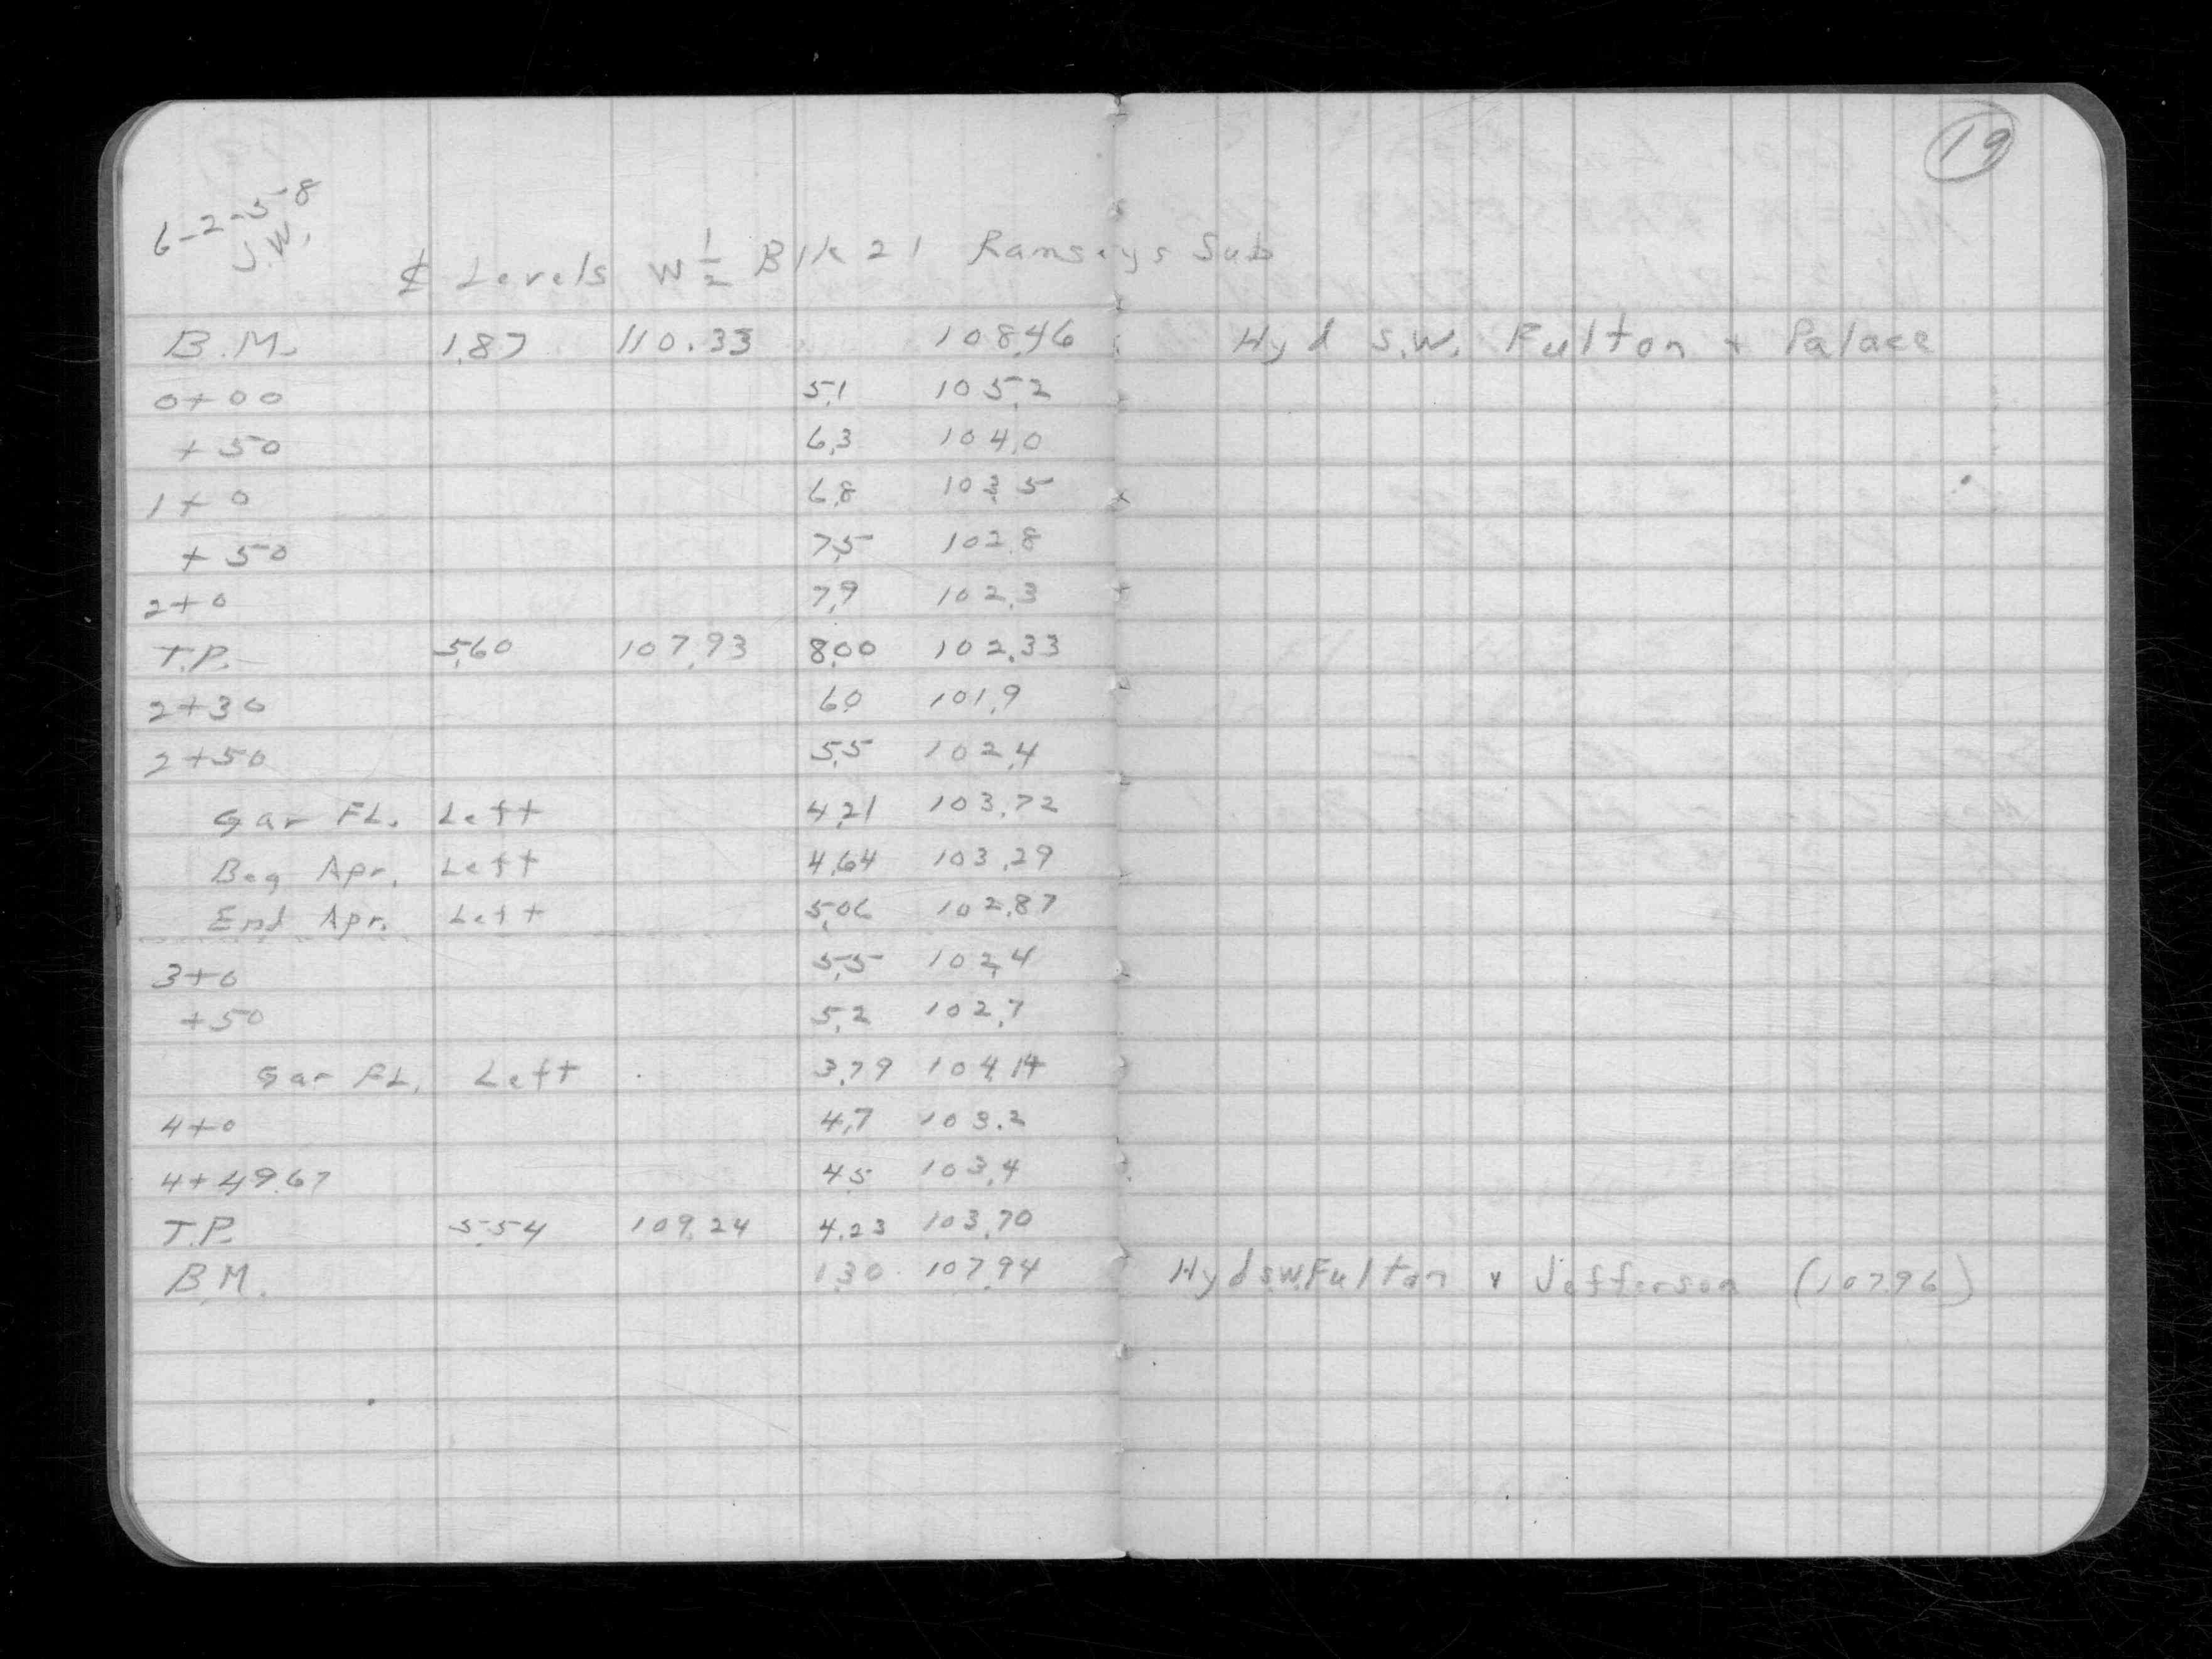 19
6-2-58
J.W.
℄ Levels W ½ Blk 21 Ramseys Sub
B.M. 1.87 110.33 108.46 Hyd S.W. Fulton + Palace
0+00 5.1 105.2
+50 6.3 104.0
1+0 6.8 103.5
+50 7.5 102.8
2+0 7.9 102.3
T.P. 5.60 107.93 8.00 102.33
2+30 6.0 101.9
2+50 5.5 102.4
Gar FL. Left 4.21 103.72
Beg Apr. Left 4.64 103.29
End Apr. Left 5.06 102.87
3+0 5.5 102.4
+50 5.2 102.7
Gar FL. Left 3.79 104.14
4+0 4.7 103.2
4+49.67 4.5 103.4
T.P. 5.54 109.24 4.23 103.70
B.M. 1.30 107.94 Hyd S.W. Fulton + Jefferson (107.96)